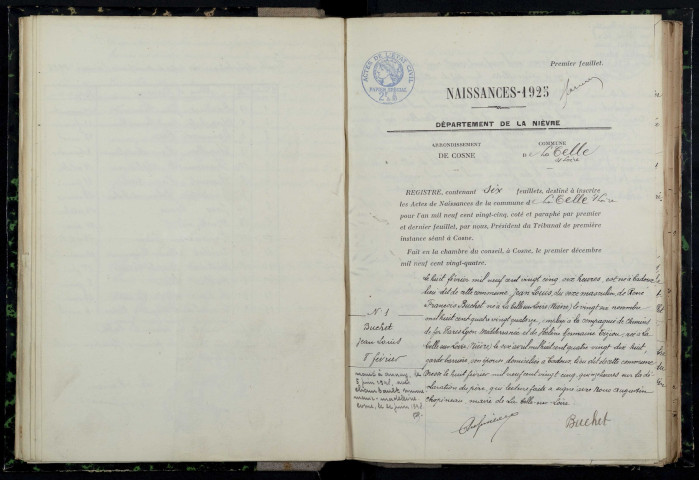 Premier feuillet.
ACTES DE L'ETAT CIVIL
PAPIER SPECIAL
NAISSANCES-1925
DÉPARTEMENT DE LA NIÈVRE
ARRONDISSEMENT
DE COSNE
COMMUNE
de La Celle
s/ Loire
REGISTRE, contenant six feuillets, destiné à inscrire
les Actes de Naissances de la commune de La Celle s/ Loire
pour l'an mil neuf cent vingt-cinq, coté et paraphé par premier
et dernier feuillet, par nous, Président du Tribunal de première
instance séant à Cosne.
Fait en la chambre du conseil, à Cosne, le premier décembre
mil neuf cent vingt-quatre.
N° 1
Buchet
Jean Louis
8 février
Le huit février mil neuf cent vingt cinq, heures, est né à
lieu dit de cette commune, Jean Louis, du sexe masculin, de René
François Buchet né à La Celle sur Loire (Nièvre) le vingt novembre
mil huit cent quatre vingt quatorze, employé à la compagnie de chemins
de fer Paris Lyon Méditerranée et de Hélène Germaine née à La
Celle sur Loire (Nièvre) le six avril mil huit cent quatre vingt dix huit
garde barrière, son épouse, domiciliés à lieu dit de cette commune
Dressé le huit février mil neuf cent vingt cinq, heures sur la dé-
claration du père, qui, lecture faite a signé avec Nous Augustin
Chopineau, maire de La Celle-sur-Loire.
Chopineau
Buchet